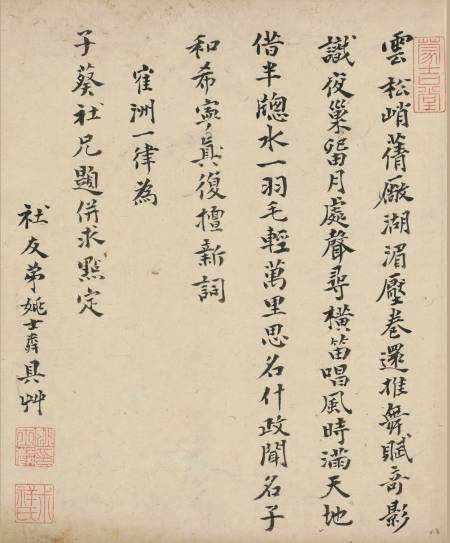 雲松峭蒨廠湖湄壓卷還推舞賦奇影
識夜巢畱月處聲尋橫笛唱風時滿天地
借半牕水一羽毛輕萬里思名什政聞名子
和希寧真復擅新詞
寉洲一律為
子葵社兄題併求點定
社友弟姚士粦具艸
蒙吉堂